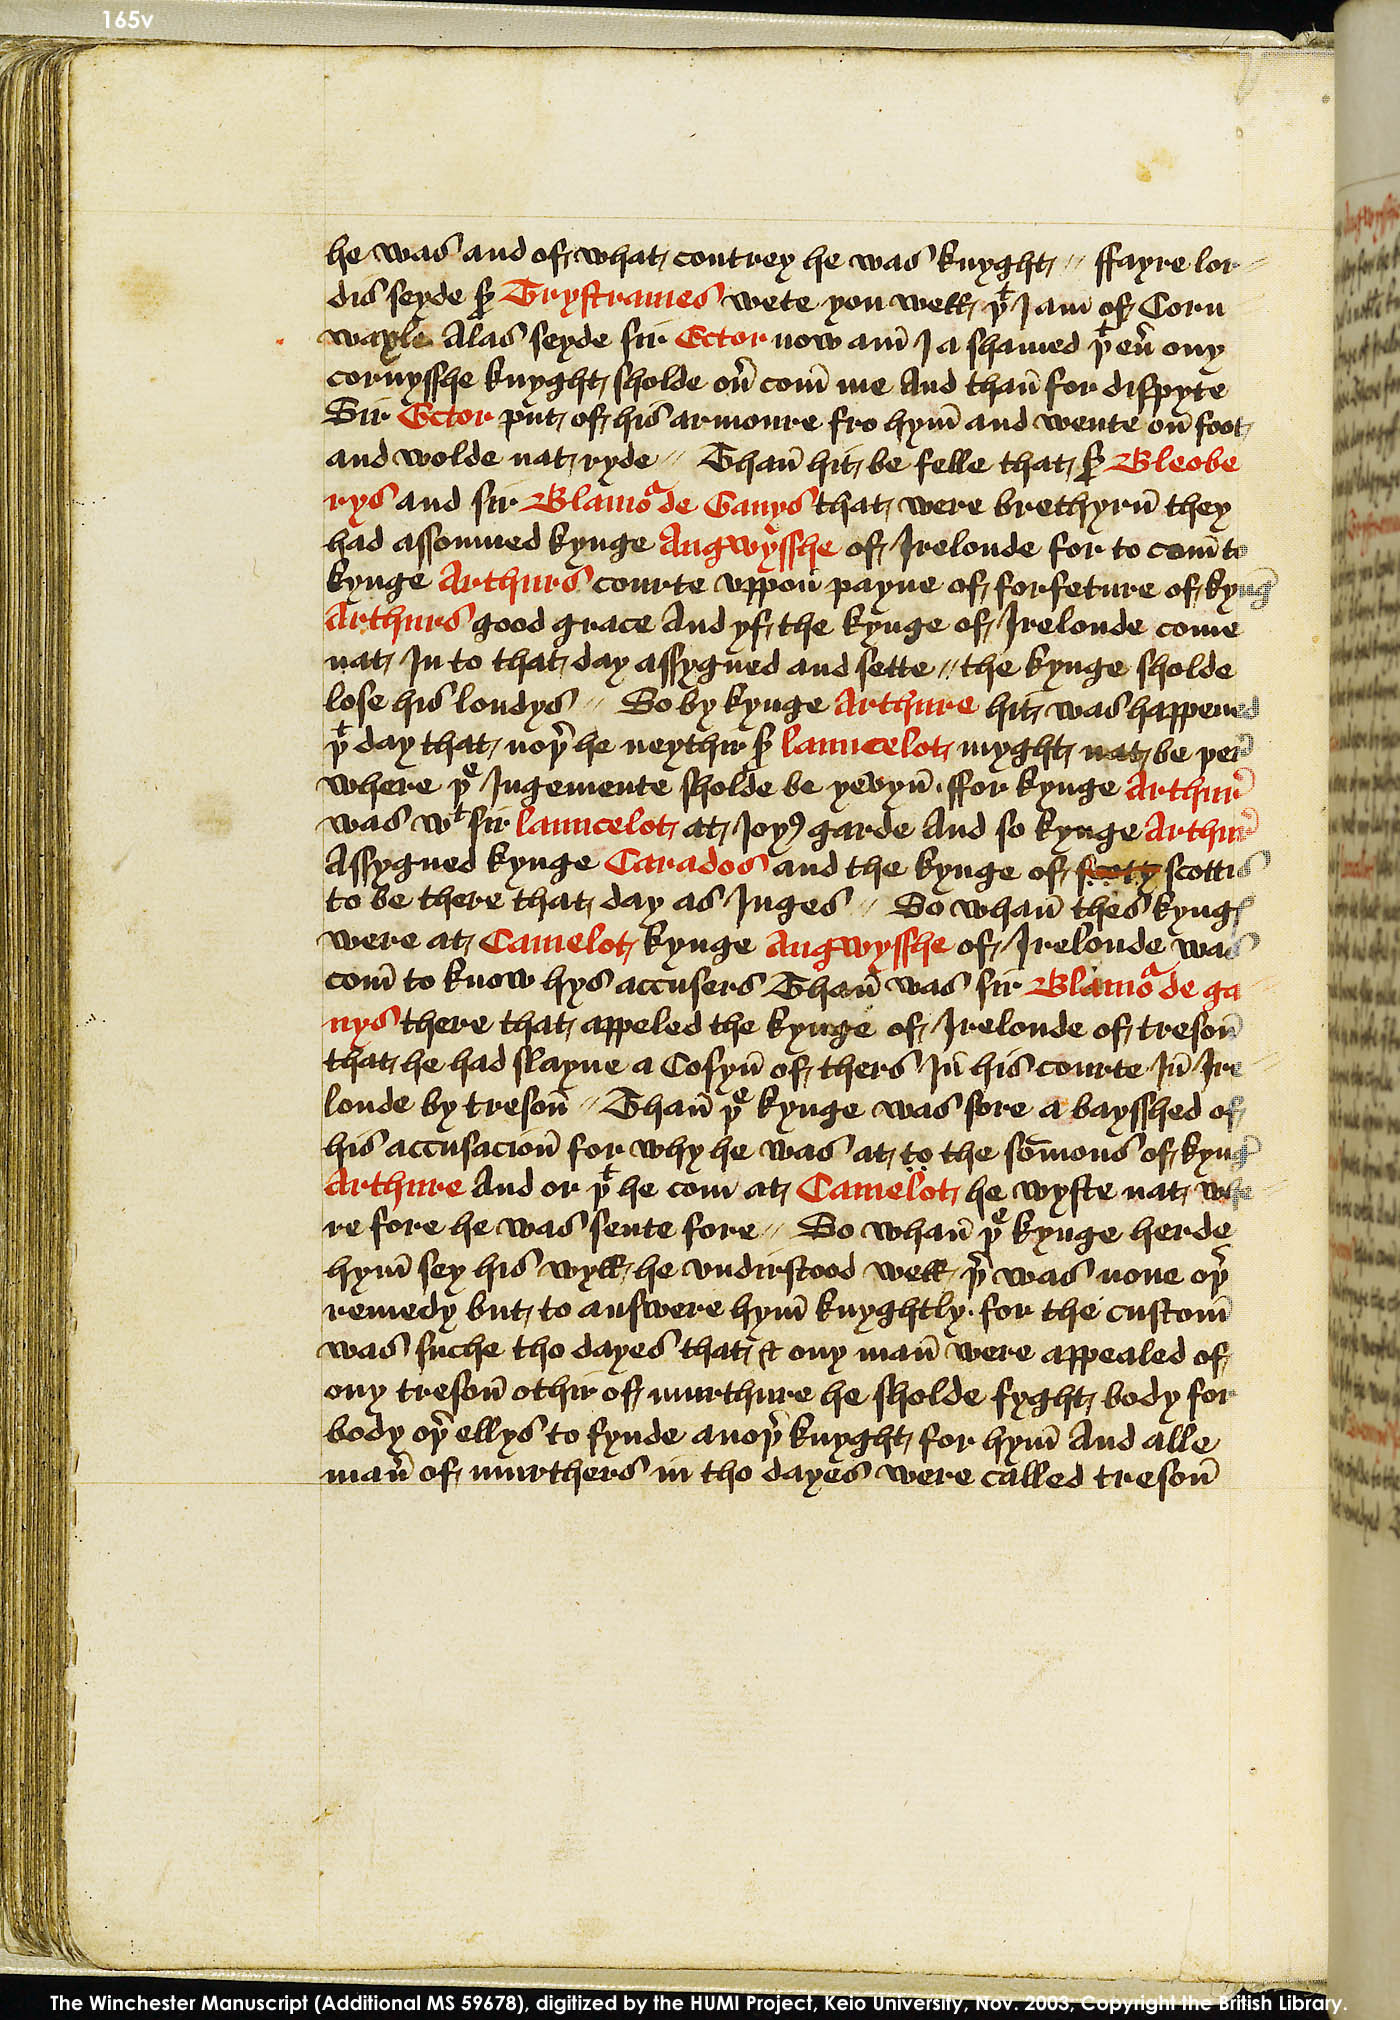 165v
he was and of what contrey he was knyght // ffayre lor
dis seyde sˢ Trystrames wete you well þᵗ I am of Corn
wayle Alas seyde sir Ector now am̄ I a shamed þᵗ eu̾ ony
cornysshe knyght sholde ou̾ com̄ me And than̄ for dispyte
Sir Ector put of his armoure fro hym̄ and wente on̄ foot
and wolde nat ryde // Than̄ hit be felle that sˢ Bleobe
rys and sir Blamoᵃ de Ganys that were brethyrn̄ they
had assomned kynge Angwysshe of Irelonde for to com̄ to
kynge Arthurs courte vppon̄ payne of forfeture of kynḡ
Arthurs good grace And yf the kynge of Irelonde come
nat In to that day assygned and sette // the kynge sholde
lose his londys // So by kynge Arthure hit was happened
þᵗ day that noþ̾ he neythir sˢ launcelot myght nat be þer̾
where þᵉ Jugemente sholde be yevyn̄ · ffor kynge Arthur̾
was wᵗ sir launcelot at Joyꝰ garde And so kynge Arthur̾
Assygned kynge Carados and the kynge of scotty scottis
to be there that day as Juges // So whan̄ thes kyngꝭ
were at Camelot kynge Angwysshe of Irelonde was
com̄ to know hys accusers Than̄ was sir Blamoᵃ de ga
nys there that appeled the kynge of Irelonde of treson̄
that he had slayne a Cosyn̄ of thers In̄ his courte In̄ Ire
londe by treson̄ // Than̄ þᵉ kynge was sore a baysshed of
his accusacion̄ for why he was at to the som̄ons of kyng̾
Arthure And or þᵗ he com at Camelot he wyste nat whe
re fore he was sente fore // So whan̄ þᵉ kynge herde
hym̄ sey his wyll he vndirstood well þ̾ was none oþ̾
remedy but to answere hym̄ knyghtly · for the custom̄
was suche tho dayes that & ony man̄ were appealed of
ony treson̄ othir of murthure he sholde fyght body for
body oþ̾ ellys to fynde anoþ̾ knyght for hym̄ And alle
man̾ of murthers in tho dayes were called treson̄
The Winchester Manuscript (Additional MS 59678), digitized by the HUMI Project, Keio University, Nov. 2003; Copyright the British Library.